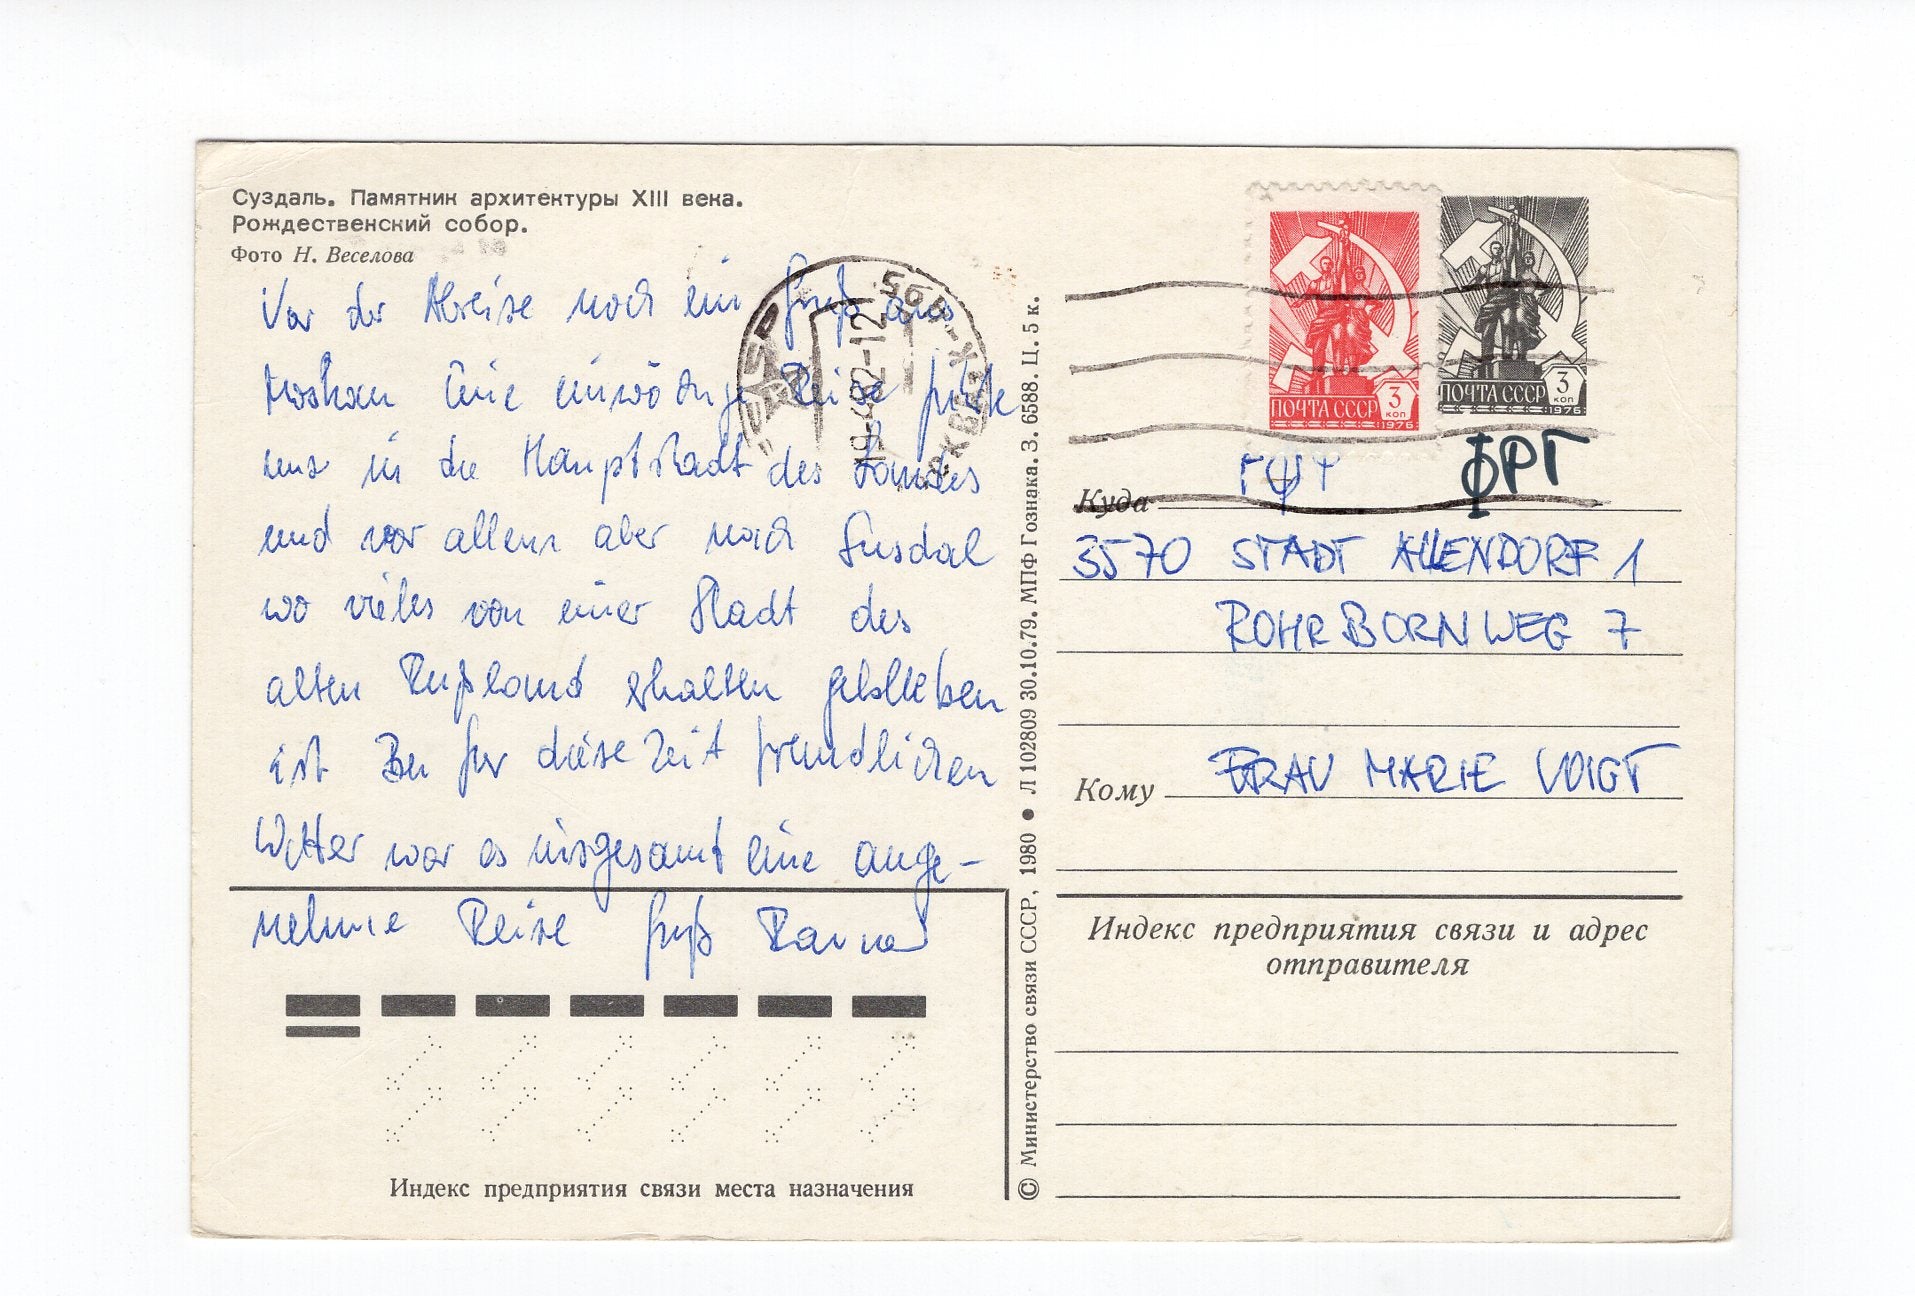 Суздаль. Памятник архитектуры XIII века.
Рождественский собор.
Фото Н. Веселова
Vor der Abreise noch ein Gruß aus
Moskau Eine einwöchige Reise führte
uns in die Hauptstadt des Landes
und vor allem aber nach Susdal
wo vieles von einer Stadt des
alten Rußland erhalten geblieben
ist Bei für diese Zeit freundlichen
Wetter war es insgesamt eine ange-
nehme Reise Gruß
Индекс предприятия связи места назначения
© Министерство связи СССР, 1980 • Л 102809 30.10.79. МПФ Гознака. З. 6588. Ц. 5 к.
19-4-82-12
ПОЧТА СССР 3 коп 1976
ПОЧТА СССР 3 коп 1976
ФРГ
Куда
3570 STADT ALLENDORF 1
ROHRBORNWEG 7
Кому FRAU MARIE VOIGT
Индекс предприятия связи и адрес
отправителя